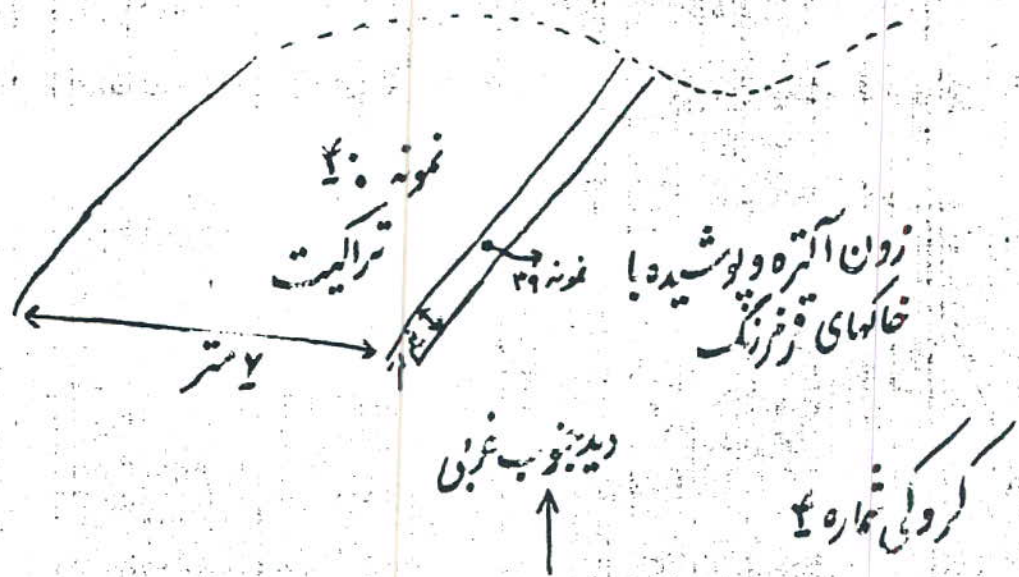 نمونه ۴۰
تراکیت
نمونه ۳۹
زون آلتره و پوشیده با
خاکهای قرمزرنگ
۷ متر
دید بجنوب غربی
کروکی شماره ۴